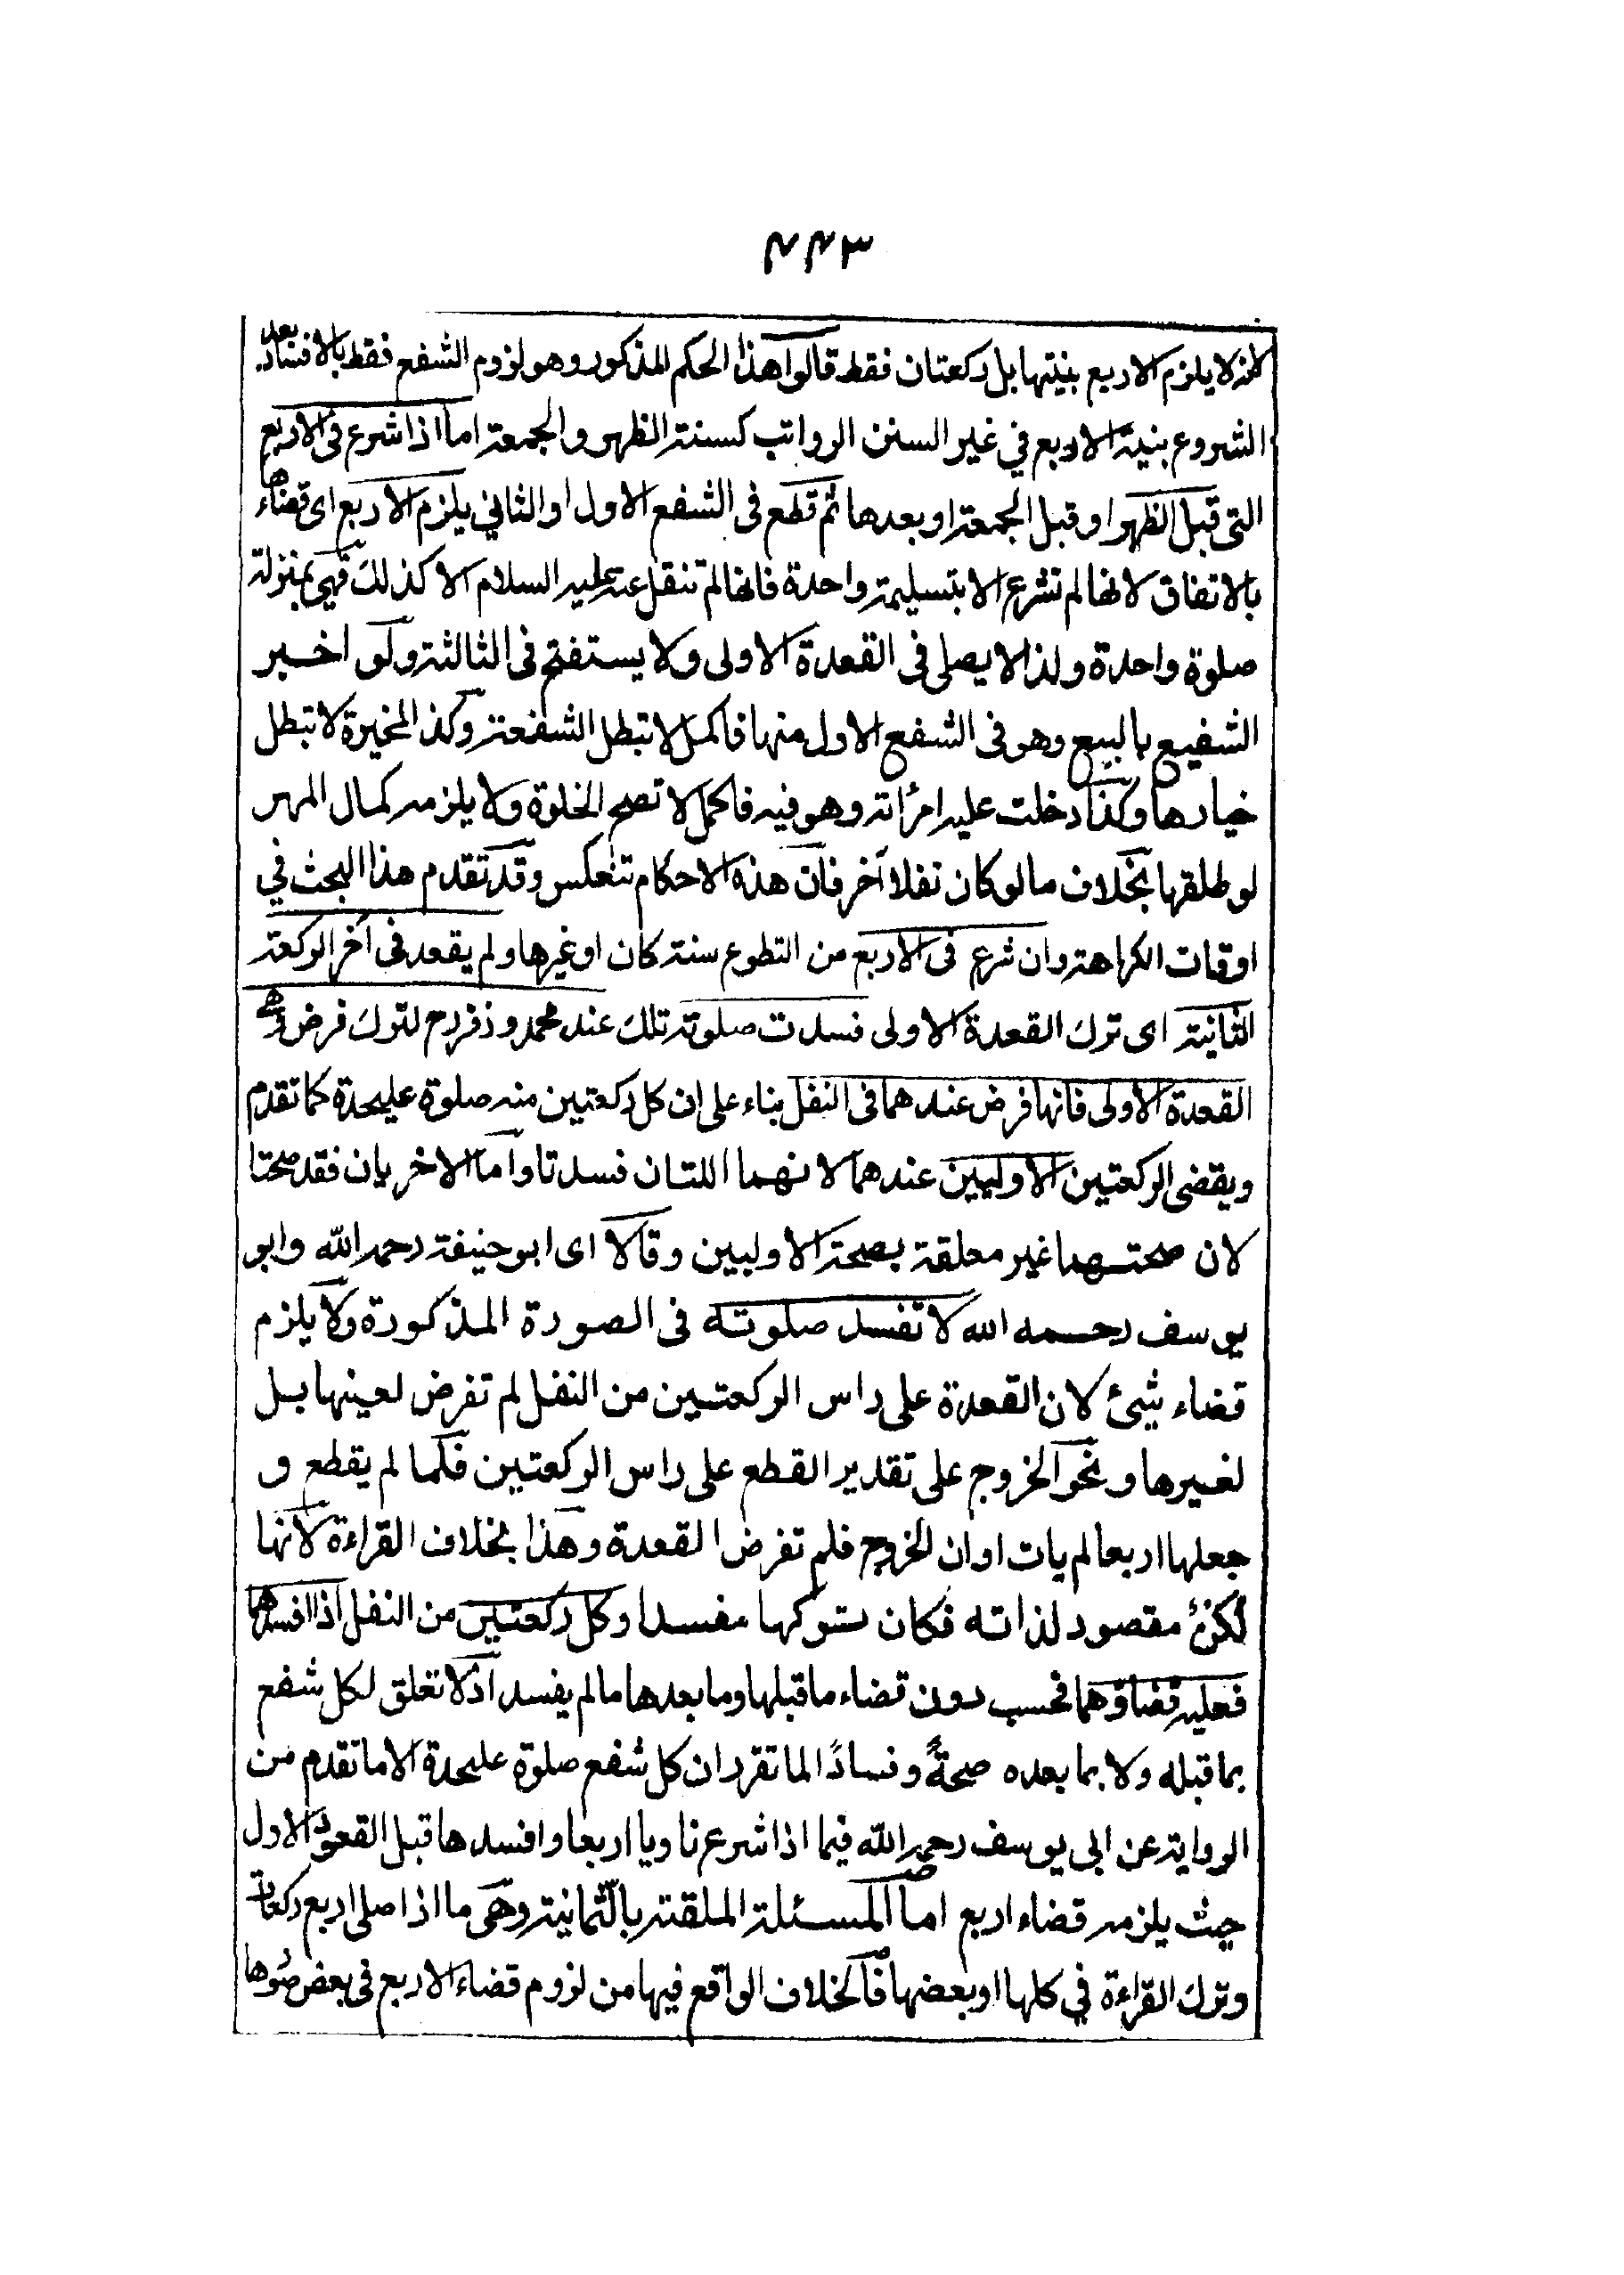 ٣٩٣
لانه لا يلزم الاربع بنيتها بل ركعتان فقط قالوا هذا الحكم المذكور وهو لزوم الشفع فقط بالافساد بعد
الشروع بنية الاربع في غير السنن الرواتب كسنة الظهر والجمعة اما اذا شرع فى الاربع
التى قبل الظهر او قبل الجمعة او بعدها ثم قطع فى الشفع الاول او الثاني يلزم الاربع اى قضاءها
بالاتفاق لانها لم تشرع الا بتسليمة واحدة فانها لم تنقل عنه عليه السلام الا كذلك فهي بمنزلة
صلوة واحدة ولذا لا يصلى فى القعدة الاولى ولا يستفتح فى الثالثة ولو اخبر
الشفيع بالبيع وهو فى الشفع الاول منها فاكمل لا تبطل الشفعة وكذا المخيرة لا تبطل
خيارها وكذا دخلت عليه امرأته وهو فيه فاكمل لا تصح الخلوة ولا يلزمه كمال المهر
لو طلقها بخلاف ما لو كان نفلا آخر فان هذه الاحكام تنعكس وقد تقدم هذا البحث في
اوقات الكراهة وان شرع فى الاربع من التطوع سنة كان او غيرها ولم يقعد فى آخر الركعة
الثانية اى ترك القعدة الاولى فسدت صلوته تلك عند محمد وزفر رح لترك فرض وهى
القعدة الاولى فانها فرض عندهما فى النفل بناء على ان كل ركعتين منه صلوة عليحدة كما تقدم
ويقضى الركعتين الاوليين عندهما لانهما اللتان فسدتا واما الاخريان فقد صحتا
لان صحتهما غير معلقة بصحة الاوليين وقالا اى ابو حنيفة رحمه الله وابو
يوسف رحمه الله لا تفسد صلوته فى الصورة المذكورة ولا يلزم
قضاء شئ لان القعدة على راس الركعتين من النفل لم تفرض لعينها بل
لغيرها و نحو الخروج على تقدير القطع على راس الركعتين فلما لم يقطع و
جعلها اربعا لم يات اوان الخروج فلم تفرض القعدة وهذا بخلاف القراءة لانها
ركن مقصود لذاته فكان تركها مفسدا وكل ركعتين من النفل اذا افسدهما
فعليه قضاؤهما فحسب دون قضاء ما قبلها وما بعدها ما لم يفسد اذ لا تعلق لكل شفع
بما قبله ولا بما بعده صحةً وفسادًا لما تقرر ان كل شفع صلوة عليحدة الا ما تقدم من
الرواية عن ابى يوسف رحمه الله فيما اذا شرع ناويا اربعا وافسدها قبل القعود الاول
حيث يلزمه قضاء اربع اما المسئلة الملقبة بالثمانية وهى ما اذا صلى اربع ركعات
وترك القراءة في كلها او بعضها فالخلاف الواقع فيها من لزوم قضاء الاربع فى بعض صورها